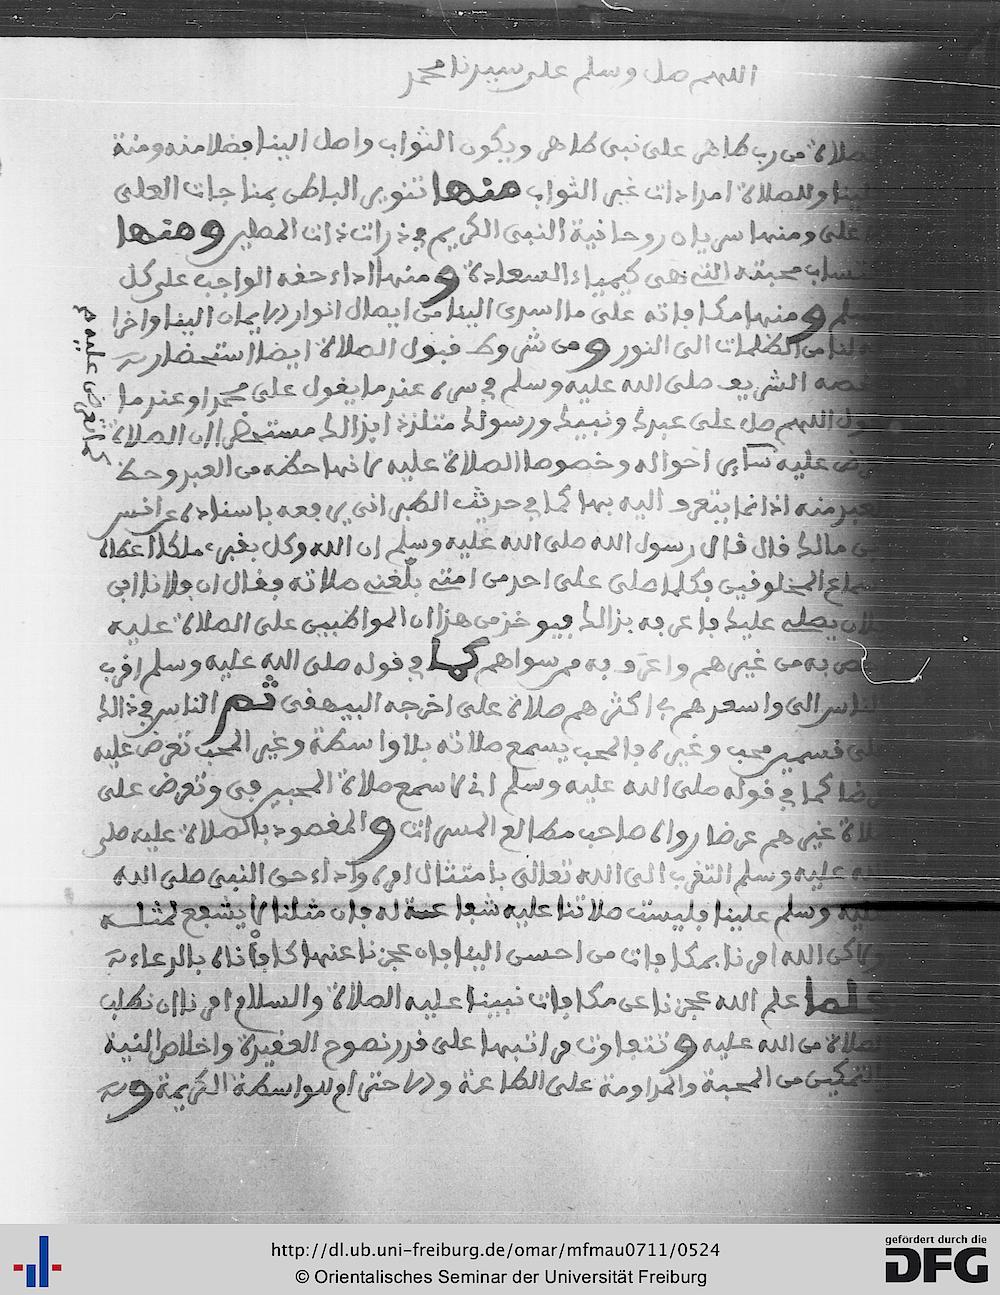 اللهم صل وسلم على سيدنا محمد
الصلاة من رب طاهر على نبي طاهر ويكون الثواب واصل الينا فضلا منه ومنة
الينا وللصلاة امدادات غير الثواب منها تنوير الباطن بمناجات العلي
على ومنها سريان روحانية النبي الكريم في ذرات ذات المصلي ومنها
اكتساب محبته التي هي كيمياء السعادة ومنها اداء حقه الواجب على كل
مسلم ومنها مكافاته على ما اسرى الينا من ايصال انوار الايمان الينا واخرا
جه لنا من الظلمات الى النور ومن شروط قبول الصلاة ايضا استحضاره
شخصه الشريف صلى الله عليه وسلم في سره عندما يقول على محمد او عندما
يقول اللهم صل على عبدك ونبيك ورسولك متلذذا بذالك مستحضرا ان الصلاة
تعرض عليه سايراحواله وخصوصا الصلاة عليه لانها حظه من العبد وحظ
العبد منه اذ انما يتعرف اليه بها كما في حديث الطبراني يرفعه باسناده عن انس
بن مالك قال قال رسول الله صلى الله عليه وسلم ان الله وكل بقبري ملكا اعطاه
اسماع المخلوقين فكلما صلى علي احد من امتي بلغني صلاته فقال ان فلانا ابن
فلان يصلي عليك فاعرفه بذالك فيوخذ من هذا ان المواظبين على الصلاة عليه
اخص به من غيرهم واعرف به ممن سواهم كما في قوله صلى الله عليه وسلم اقرب
الناس الي واسعدهم بي اكثرهم صلاة علي اخرجه البيهقي ثم الناس في ذالك
على قسمين محب وغيره فالمحب يسمع صلاته بلا واسطة وغير المحب تعرض عليه
عرضا كما في قوله صلى الله عليه وسلم اني لاسمع صلاة المحبين في وتعرض علي
صلاة غيرهم عرضا رواه صاحب مطالع المسرات والمقصود بالصلاة عليه صلى
الله عليه وسلم التقرب الى الله تعالى بامتثال امره واداء حق النبي صلى الله
عليه وسلم علينا فليست صلاتنا عليه شفاعة له فان مثلنا لا يشفع لمثله
ولاكن الله امرنا بمكافات من احسن الينا فان عجزنا عنها كافأناه بالدعاء به
علما علم الله عجزنا عن مكافات نبينا عليه الصلاة والسلام امرنا ان نطلب
الصلاة من الله عليه وتتفاوت مراتبها على قدر نصوح العقيدة واخلاص النية
التمكين من المحبة والمداومة على الطاعة والاحترام للواسطة الكريمة وبه
تعرض عليه
http://dl.ub.uni-freiburg.de/omar/mfmau0711/0524
© Orientalisches Seminar der Universität Freiburg
gefördert durch die
DFG